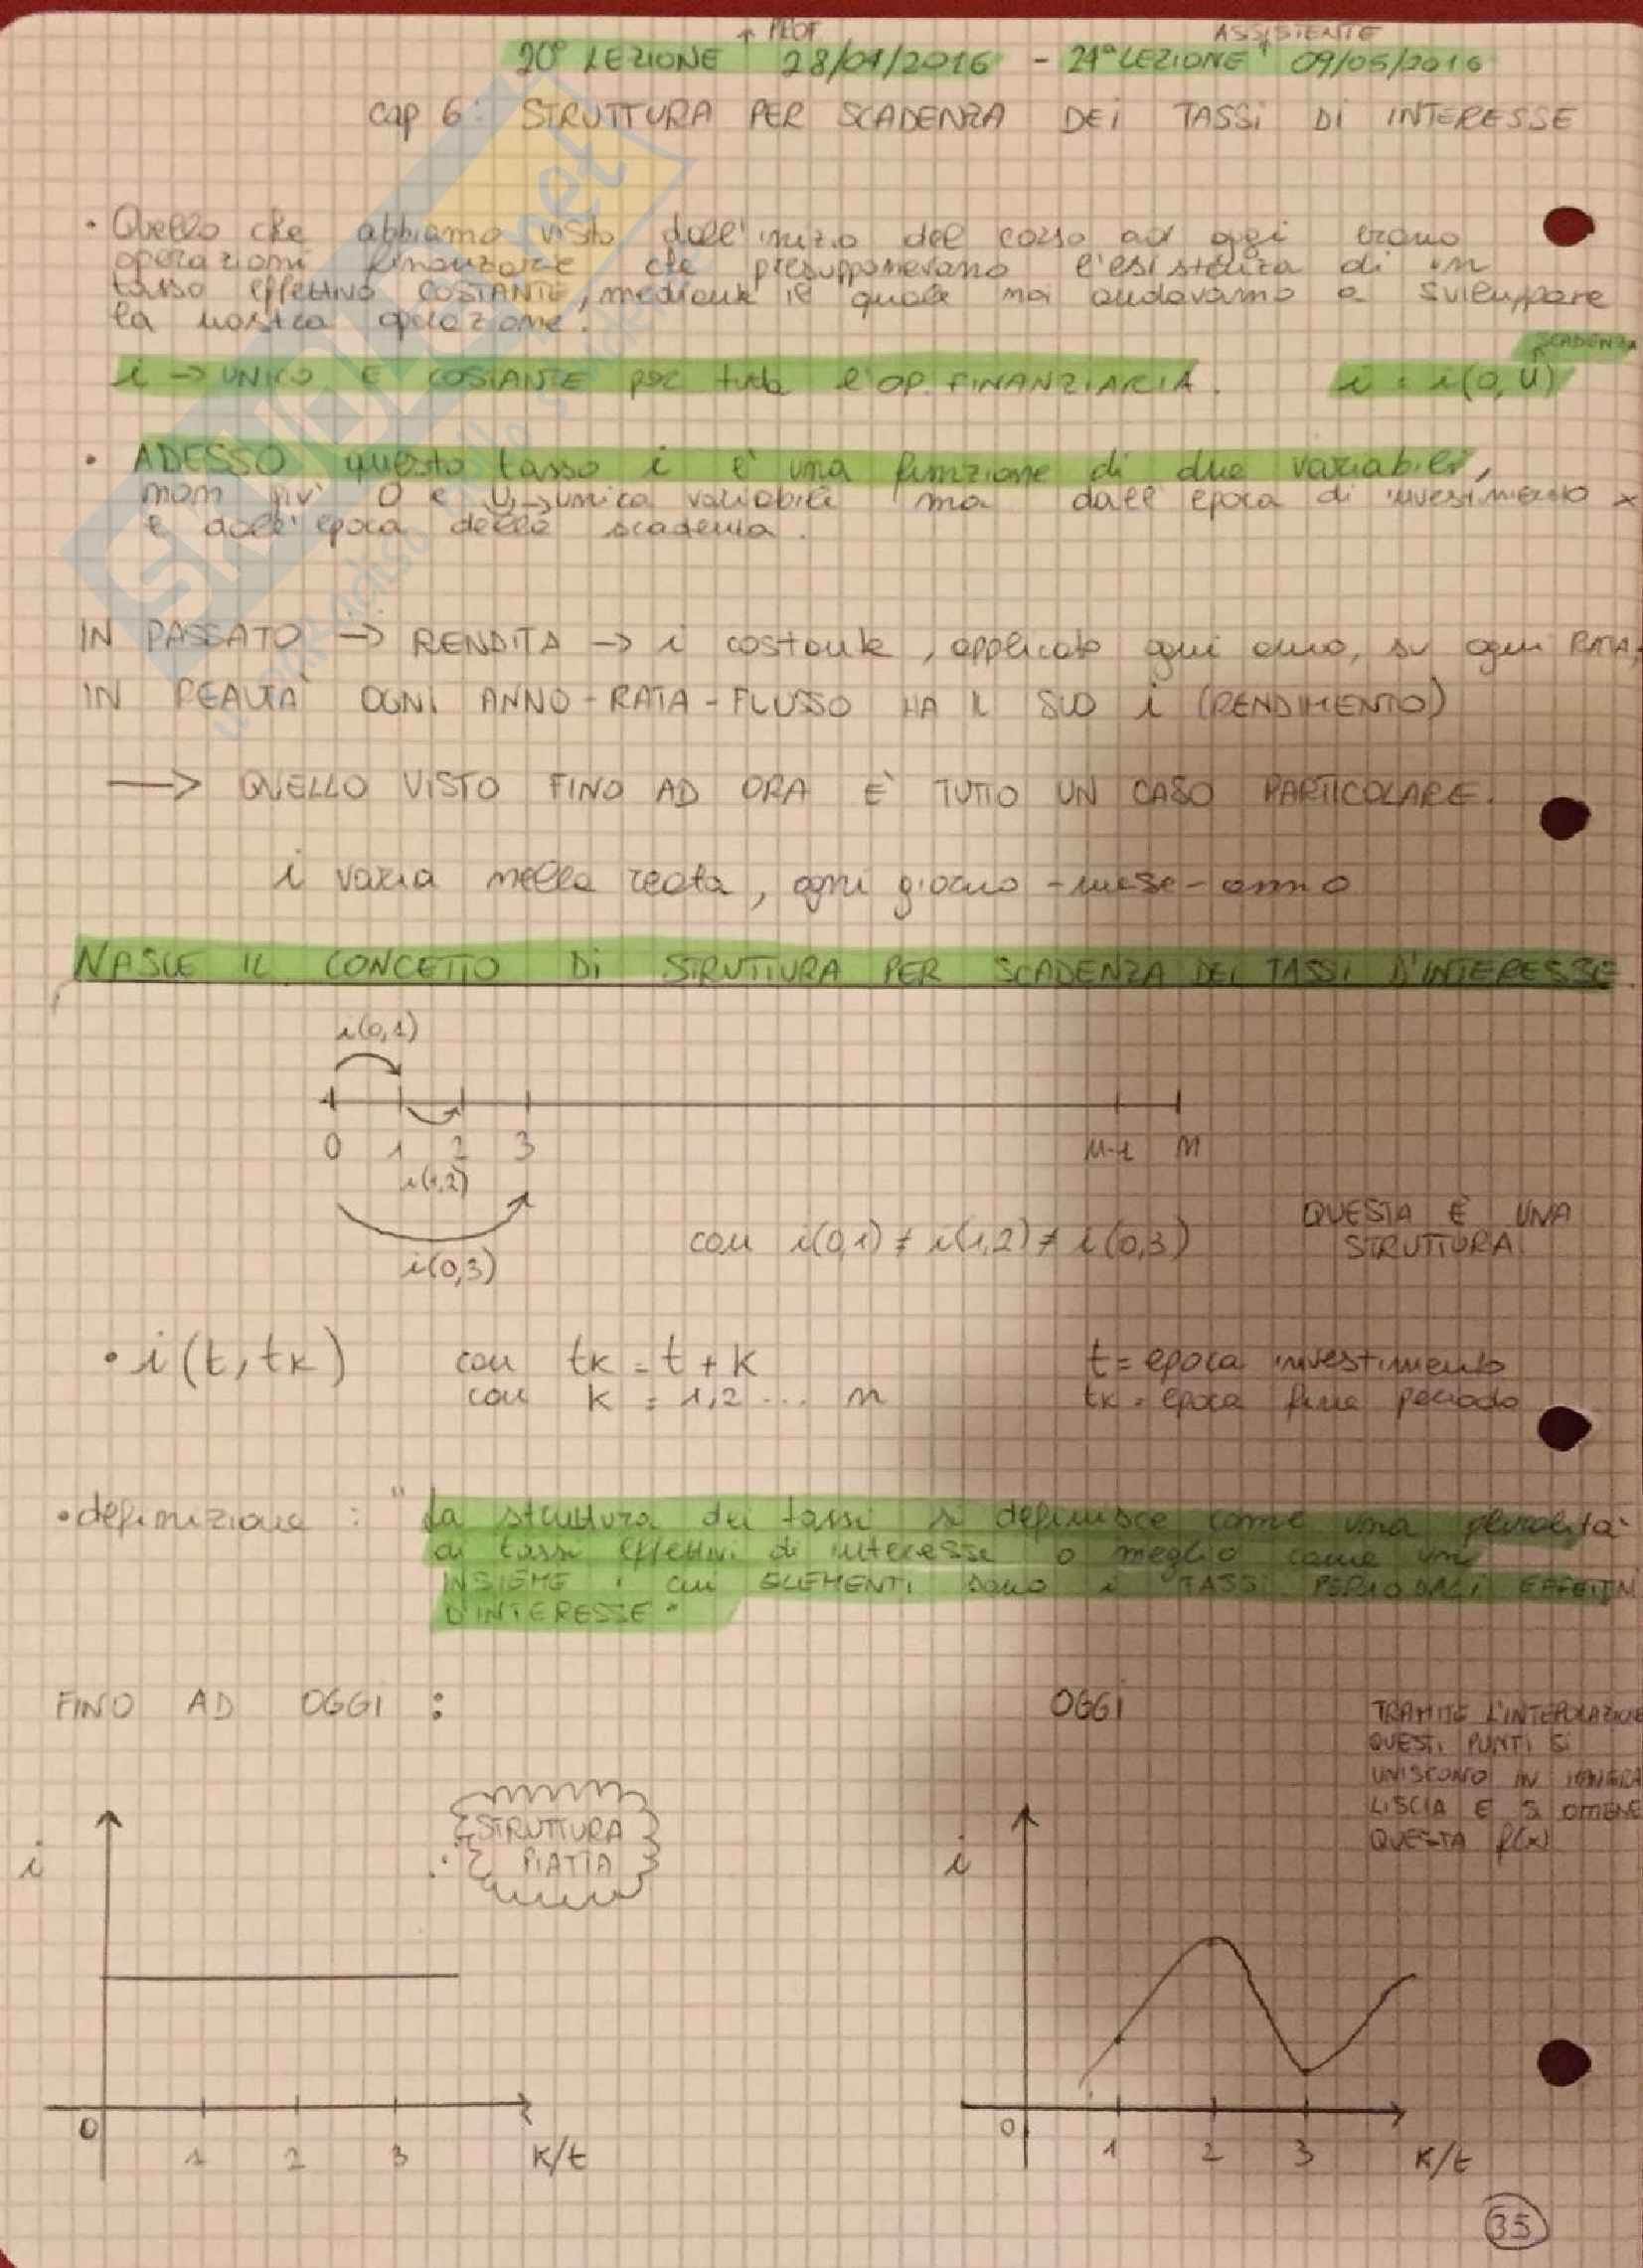 ↑ PROF ASSISTENTE
20° LEZIONE 28/04/2016 - 21ª LEZIONE 09/05/2016
cap 6: STRUTTURA PER SCADENZA DEI TASSI DI INTERESSE
• Quello che abbiamo visto dall'inizio del corso ad oggi erano
operazioni finanziarie che presupponevano l'esistenza di un
tasso effettivo COSTANTE, mediante il quale noi andavamo a sviluppare
la nostra operazione.
SCADENZA
i → UNICO E COSTANTE per tutta l'OP. FINANZIARIA. i = i(0, U)
• ADESSO questo tasso i è una funzione di due variabili,
non più 0 e U→unica variabile ma dall'epoca di investimento x
e dall'epoca della scadenza.
IN PASSATO → RENDITA → i costante, applicato ogni anno, su ogni RATA;
IN REALTÀ OGNI ANNO-RATA-FLUSSO HA IL SUO i (RENDIMENTO)
→ QUELLO VISTO FINO AD ORA È TUTTO UN CASO PARTICOLARE.
i varia nella realtà, ogni giorno-mese-anno
NASCE IL CONCETTO DI STRUTTURA PER SCADENZA DEI TASSI D'INTERESSE.
i(0,1)
0 1 2 3 n-1 n
i(1,2)
i(0,3)
con i(0,1) ≠ i(1,2) ≠ i(0,3)
QUESTA È UNA
STRUTTURA
• i(t, tk) con tk = t + k t = epoca investimento
con k = 1,2 ... n tk = epoca fine periodo
• definizione: "La struttura dei tassi si definisce come una pluralità
di tassi effettivi di interesse o meglio come un
INSIEME i cui ELEMENTI sono i TASSI PERIODALI EFFETTIVI
D'INTERESSE"
FINO AD OGGI :
STRUTTURA
PIATTA
i
0 1 2 3 K/t
OGGI
TRAMITE L'INTEPOLAZIONE
QUESTI PUNTI SI
UNISCONO IN MANIERA
LISCIA E SI OTTIENE
QUESTA f(x)
i
0 1 2 3 K/t
35
skuola.net